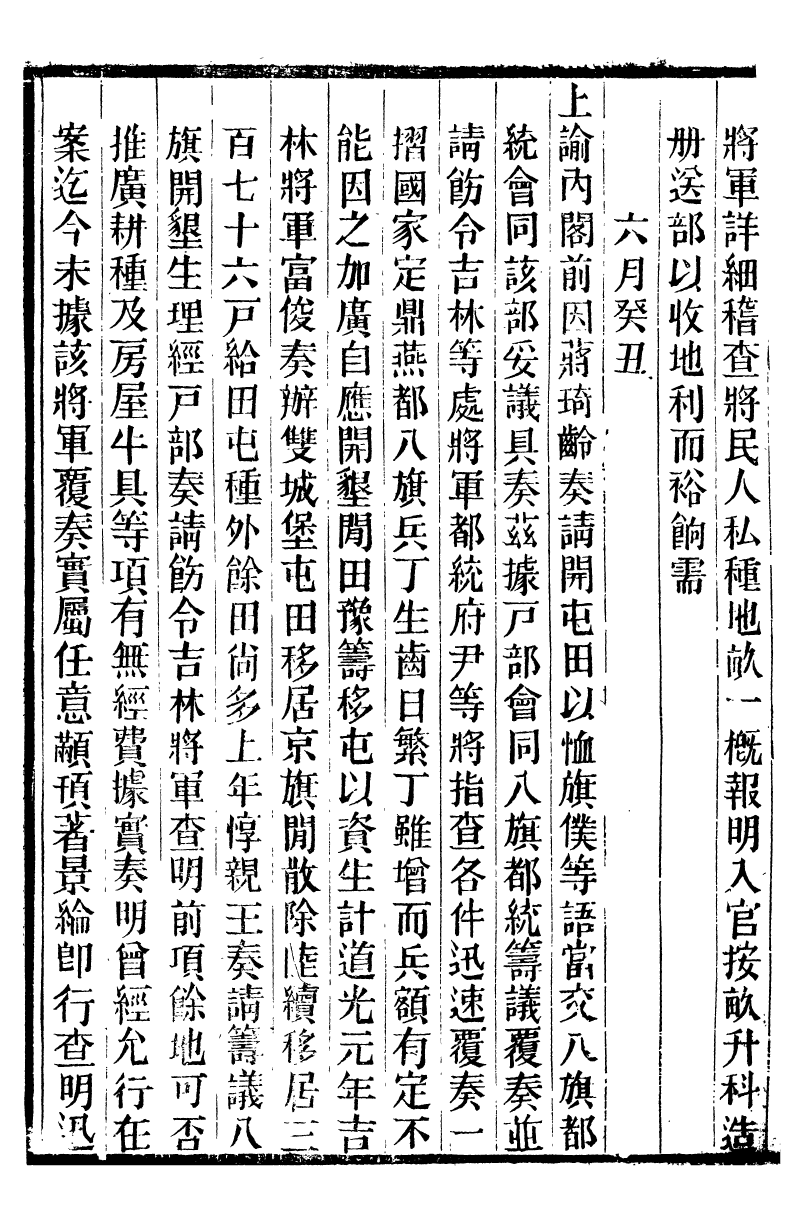 將軍詳細稽查將民人私種地畝一槪報明入官按畝升科造
册送部以收地利而裕餉需
六月癸丑
上諭內閣前因蔣琦齡奏請開屯田以恤旗僕等語當交八旗都
統會同該部妥議具奏茲據戸部會同八旗都統籌議覆奏並
請飭令吉林等處將軍都統府尹等將指查各件迅速覆奏一
摺國家定鼎燕都八旗兵丁生齒日繁丁雖增而兵額有定不
能因之加廣自應開墾閒田豫籌移屯以資生計道光元年吉
林將軍富俊奏辦雙城堡屯田移居京旗閒散除陸續移居三
百七十六戸給田屯種外餘田尙多上年惇親王奏請籌議八
旗開墾生理經戸部奏請飭令吉林將軍查明前項餘地可否
推廣耕種及房屋牛具等項有無經費據實奏明曾經允行在
案迄今未據該將軍覆奏實屬任意顢頇著景綸卽行查明迅